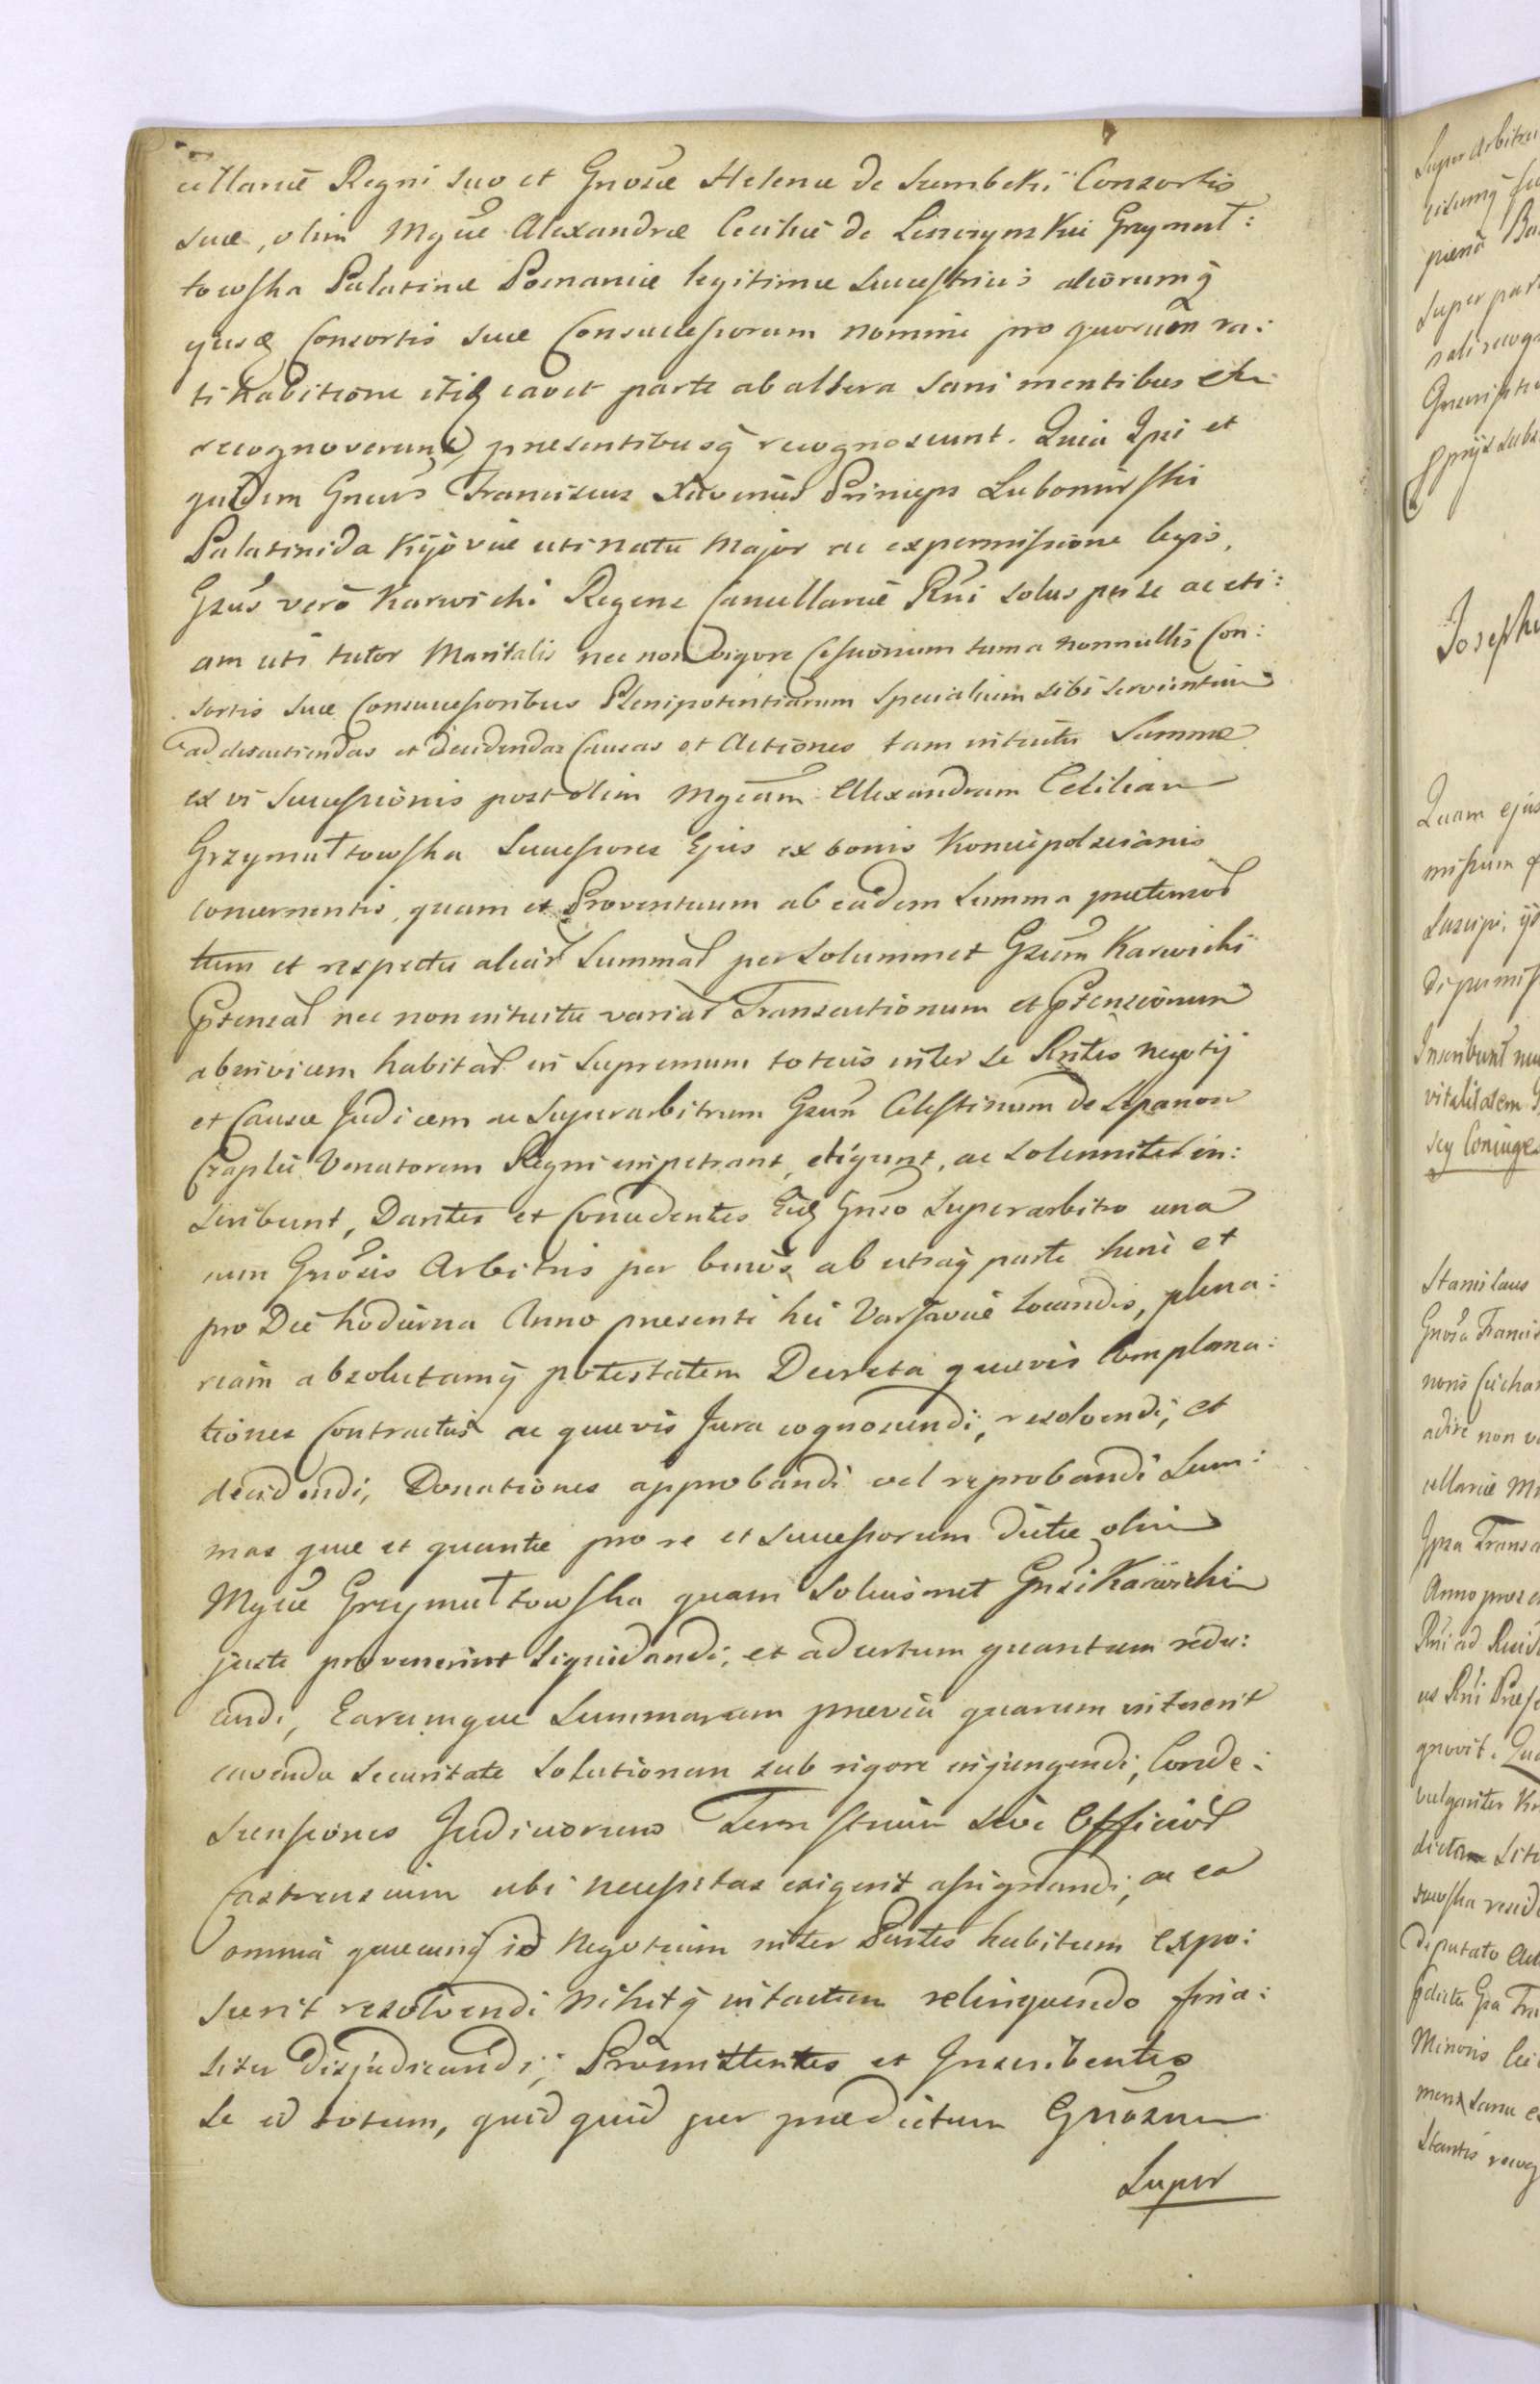 cellariæ Regni suo et Gnosæ Helenæ de Szembeki Consortis
suæ, olim Mgcæ Alexandræ Ceciliæ de Lesczynskie Grzymuł:
towska Palatinæ Posnaniæ legitimæ Successricis aliorumq̃
ejusđ Consortis suæ Consuccessorum nomine pro quorum ra:
tihabitione ijđ cavet parte ab altera sani mentibus etc
recognoverunt, præsentibusq̃ recognoscunt. Quia Ipsi et
quidem Gnsus Franciscus Xaverius Princeps Lubomirski
Palatinida Kijoviæ uti natu Major ac ex permissione legis,
Gsus verò Karwicki Regens Cancellariæ Rni solus per se ac eti:
am uti tutor Maritalis nec non vigore Cessionum tum a nonnullis Con:
sortis suæ Consuccessoribus Plenipotentiarum Specialium sibi servientium
ad discutiendas et decidendas Causas et Actiones tam intuitu Summæ
ex vi Successionis post olim Mgcam Alexandram Cecilian
Grzymułtowska Successores Ejus ex bonis Koniecpolscianis
concernentis, quam et Proventuum ab eadem Summa prætensoʀ
tum et respectu aliaʀ Summaʀ per Solummet Gsum Karwicki
Ptensaʀ nec non intuitu variaʀ Transactionum et Ptensionum
abinvicem habitaʀ in Supremum totius inter se Ptes Negotij
et Causæ Judicem ac Superarbitrum Gsum Celestinum de Lepanow
Czaplic Venatorem Regni impetrant, eligunt, ac solemniter in:
scribunt, Dantes et Concedentes Eiđ Gnso Superarbitro una
cum Gnosis Arbitris per binos ab utraq̃ parte hunc et
pro Die hodierna Anno præsenti hic Varsaviæ locandis, plena:
riam absolutamq̃ potestatem Decreta quævis Complana:
tiones Contractus ac quævis Jura cognoscendi, resolvendi, et
decidendi, Donationes approbandi vel reprobandi Sum:
mas quæ et quantæ pro re et Successorum dictæ olim
Mgcæ Grzymułtowska quam Soliusmet Gnsi Karwicki
juste provenerint liquidandi, et ad certum quantum redu:
cendi, Earumque Summarum prævia quarum intererit
cavenda Securitate Solutionem sub rigore injungendi, Conde:
scensiones Judiciorum Terrestrium sive Officioʀ
Castrensium ubi necessitas exigerit assignandi, ac ea
omnia quæcunq̃ id Negotium inter Partes habitum expo:
scerit resolvendi Nihilq̃ intactum relinquendo fina:
liter Disjudicandi, Promittentes et Inscribentes
Se id totum, quid quid per prædictum Gnosum
Super